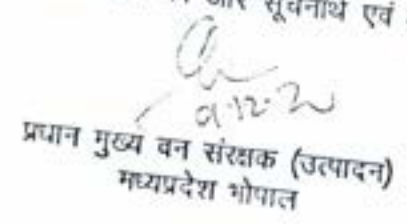 और सूचनार्थ एवं
9.12.20
प्रधान मुख्य वन संरक्षक (उत्पादन)
मध्यप्रदेश भोपाल